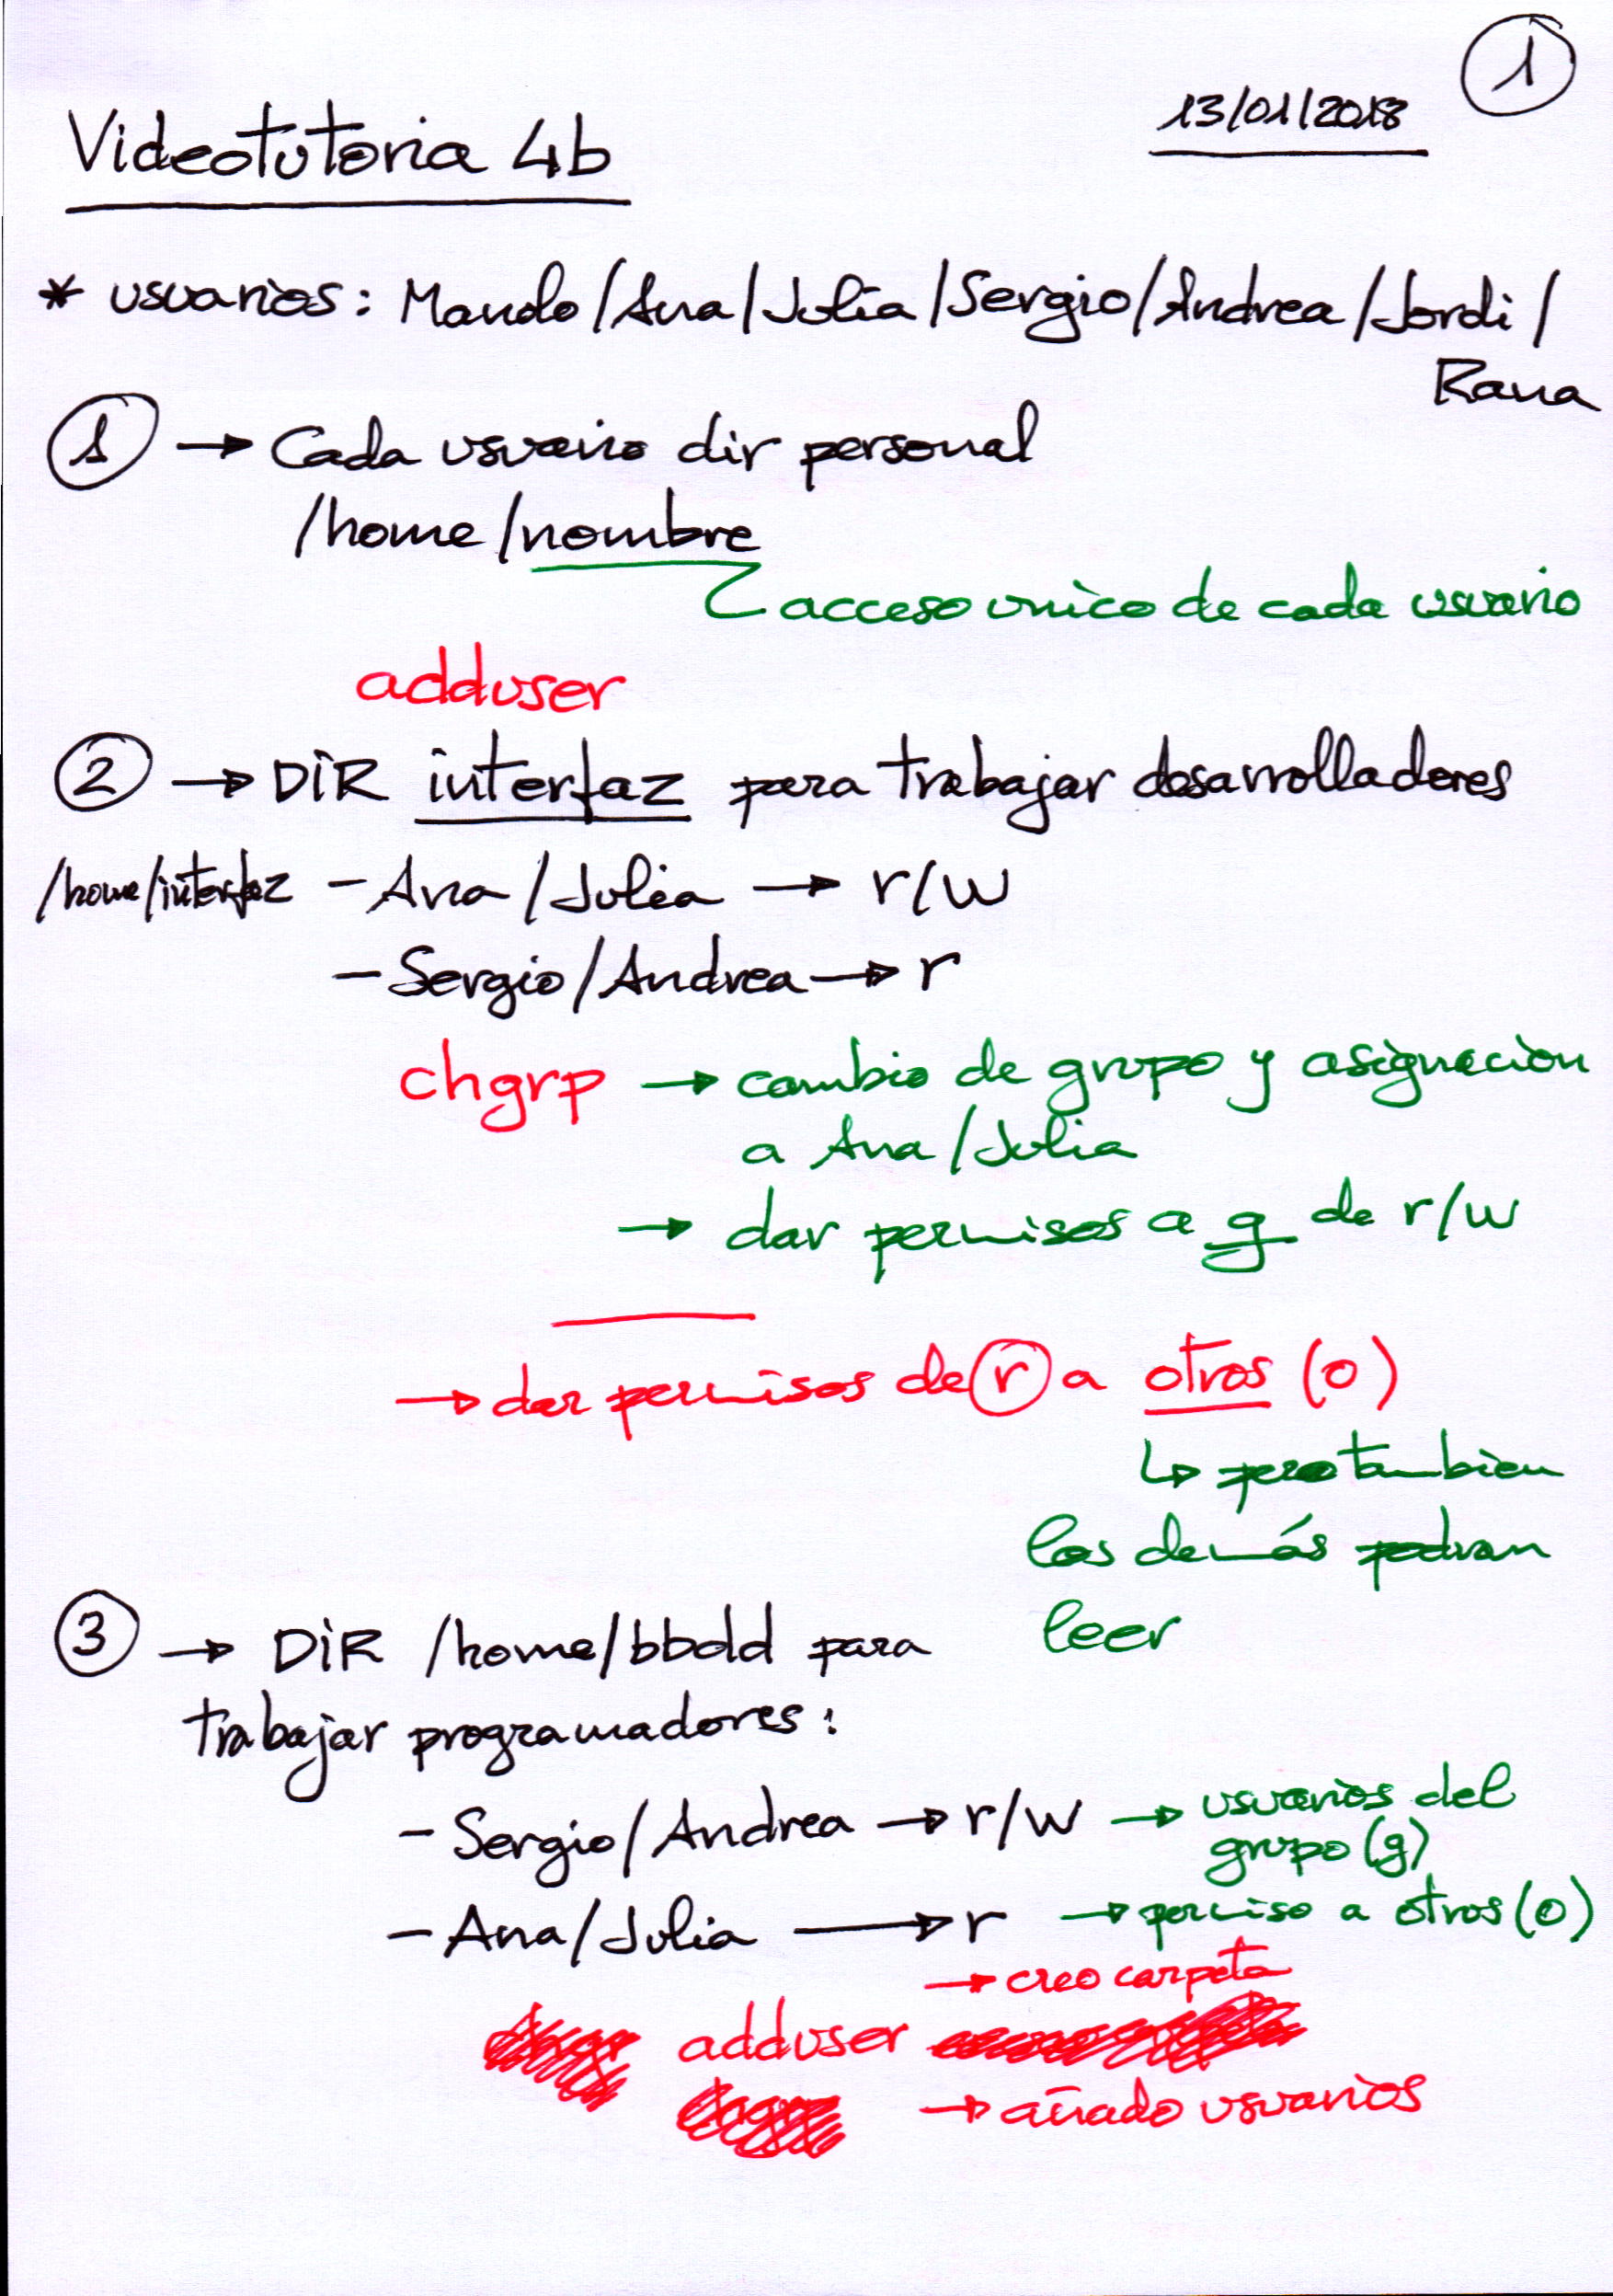 1
13/01/2018
Videotutoria 4b
* usuarios: Manolo/Ana/Julia/Sergio/Andrea/Jordi/
Rana
1 → Cada usuario dir personal
/home/nombre
acceso unico de cada usuario
adduser
2 → DiR interfaz para trabajar desarrolladores
/home/interfaz - Ana/Julia → r/w
- Sergio/Andrea → r
chgrp → cambio de grupo y asignacion
a Ana/Julia
→ dar permisos a g de r/w
→ dar permisos de r a otros (o)
↳ pero tambien
los demás podran
leer
3 → DiR /home/bbdd para
trabajar programadores:
- Sergio/Andrea → r/w → usuarios del
grupo (g)
- Ana/Julia → r → permiso a otros (o)
→ creo carpeta
adduser
→ añado usuarios